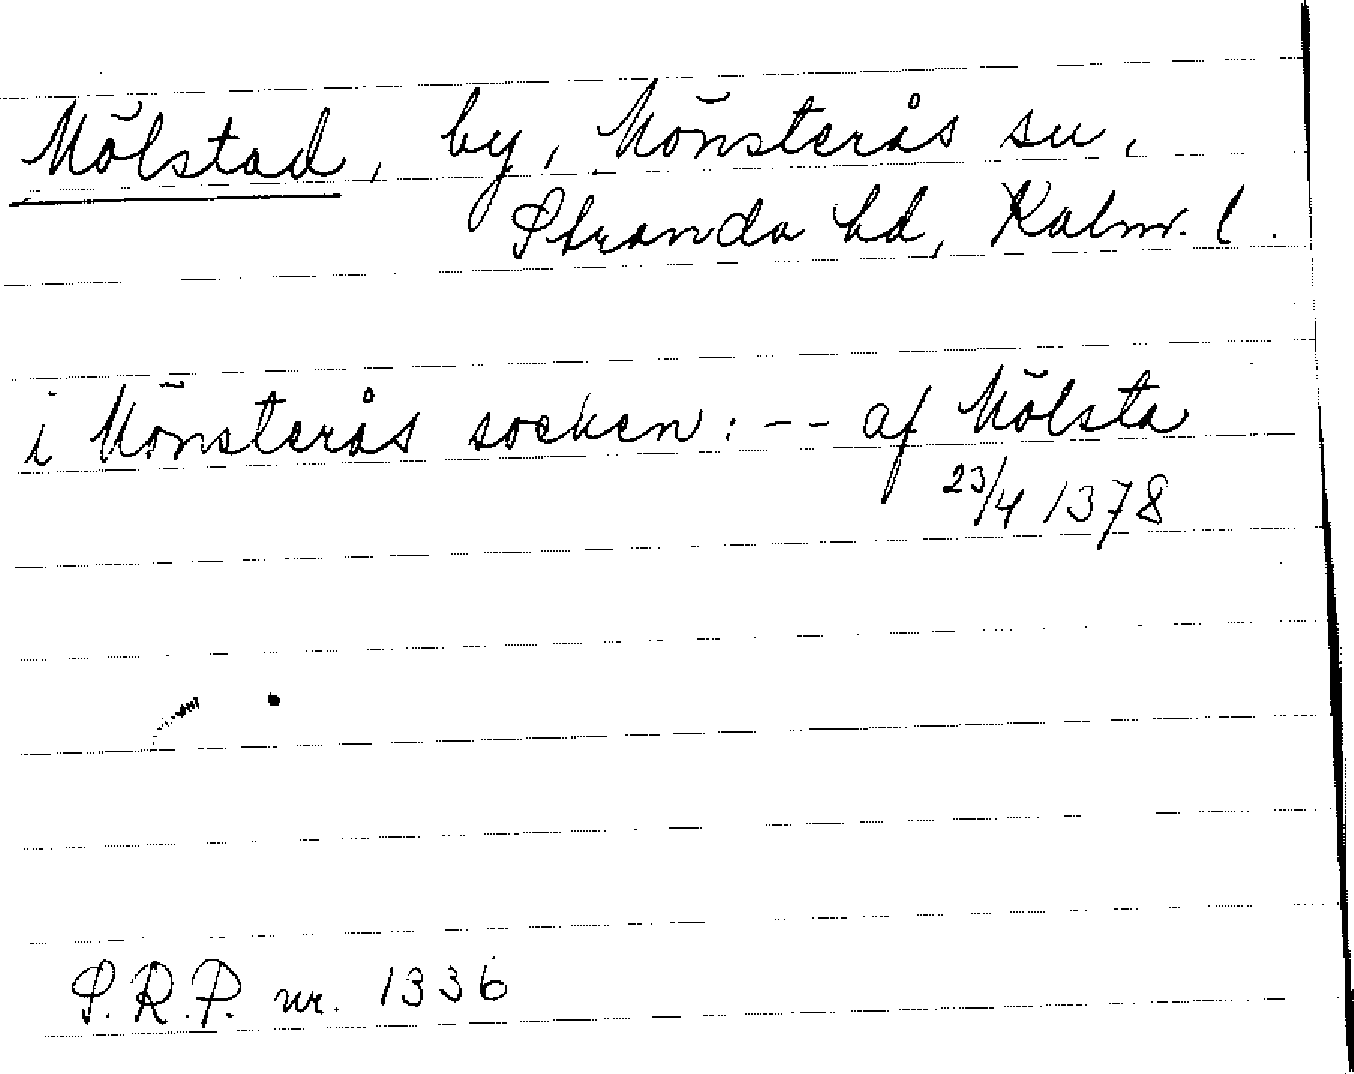 Mölstad, by, Mönsterås sn,
Stranda hd, Kalm. l.
i Mönsterås socken: -- af Mölsta
23/4 1378
S.R.P. nr. 1336